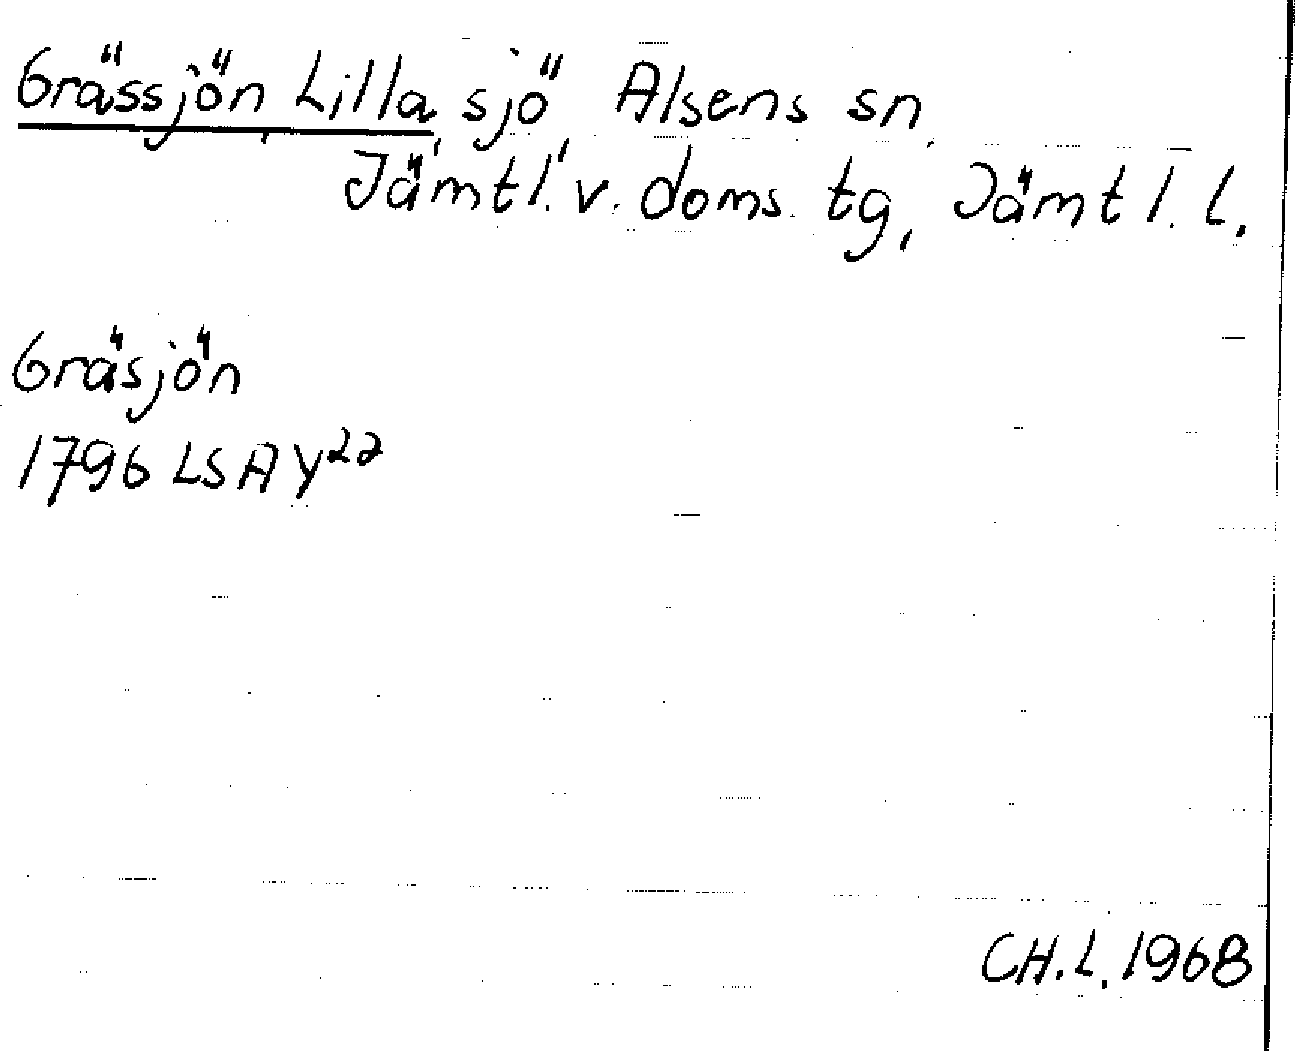 Grässjön, Lilla, sjö, Alsens sn,
Jämtl. v. doms. tg, Jämtl. l.
Gräsjön
1796 LSA Y22
CH.L. 1968